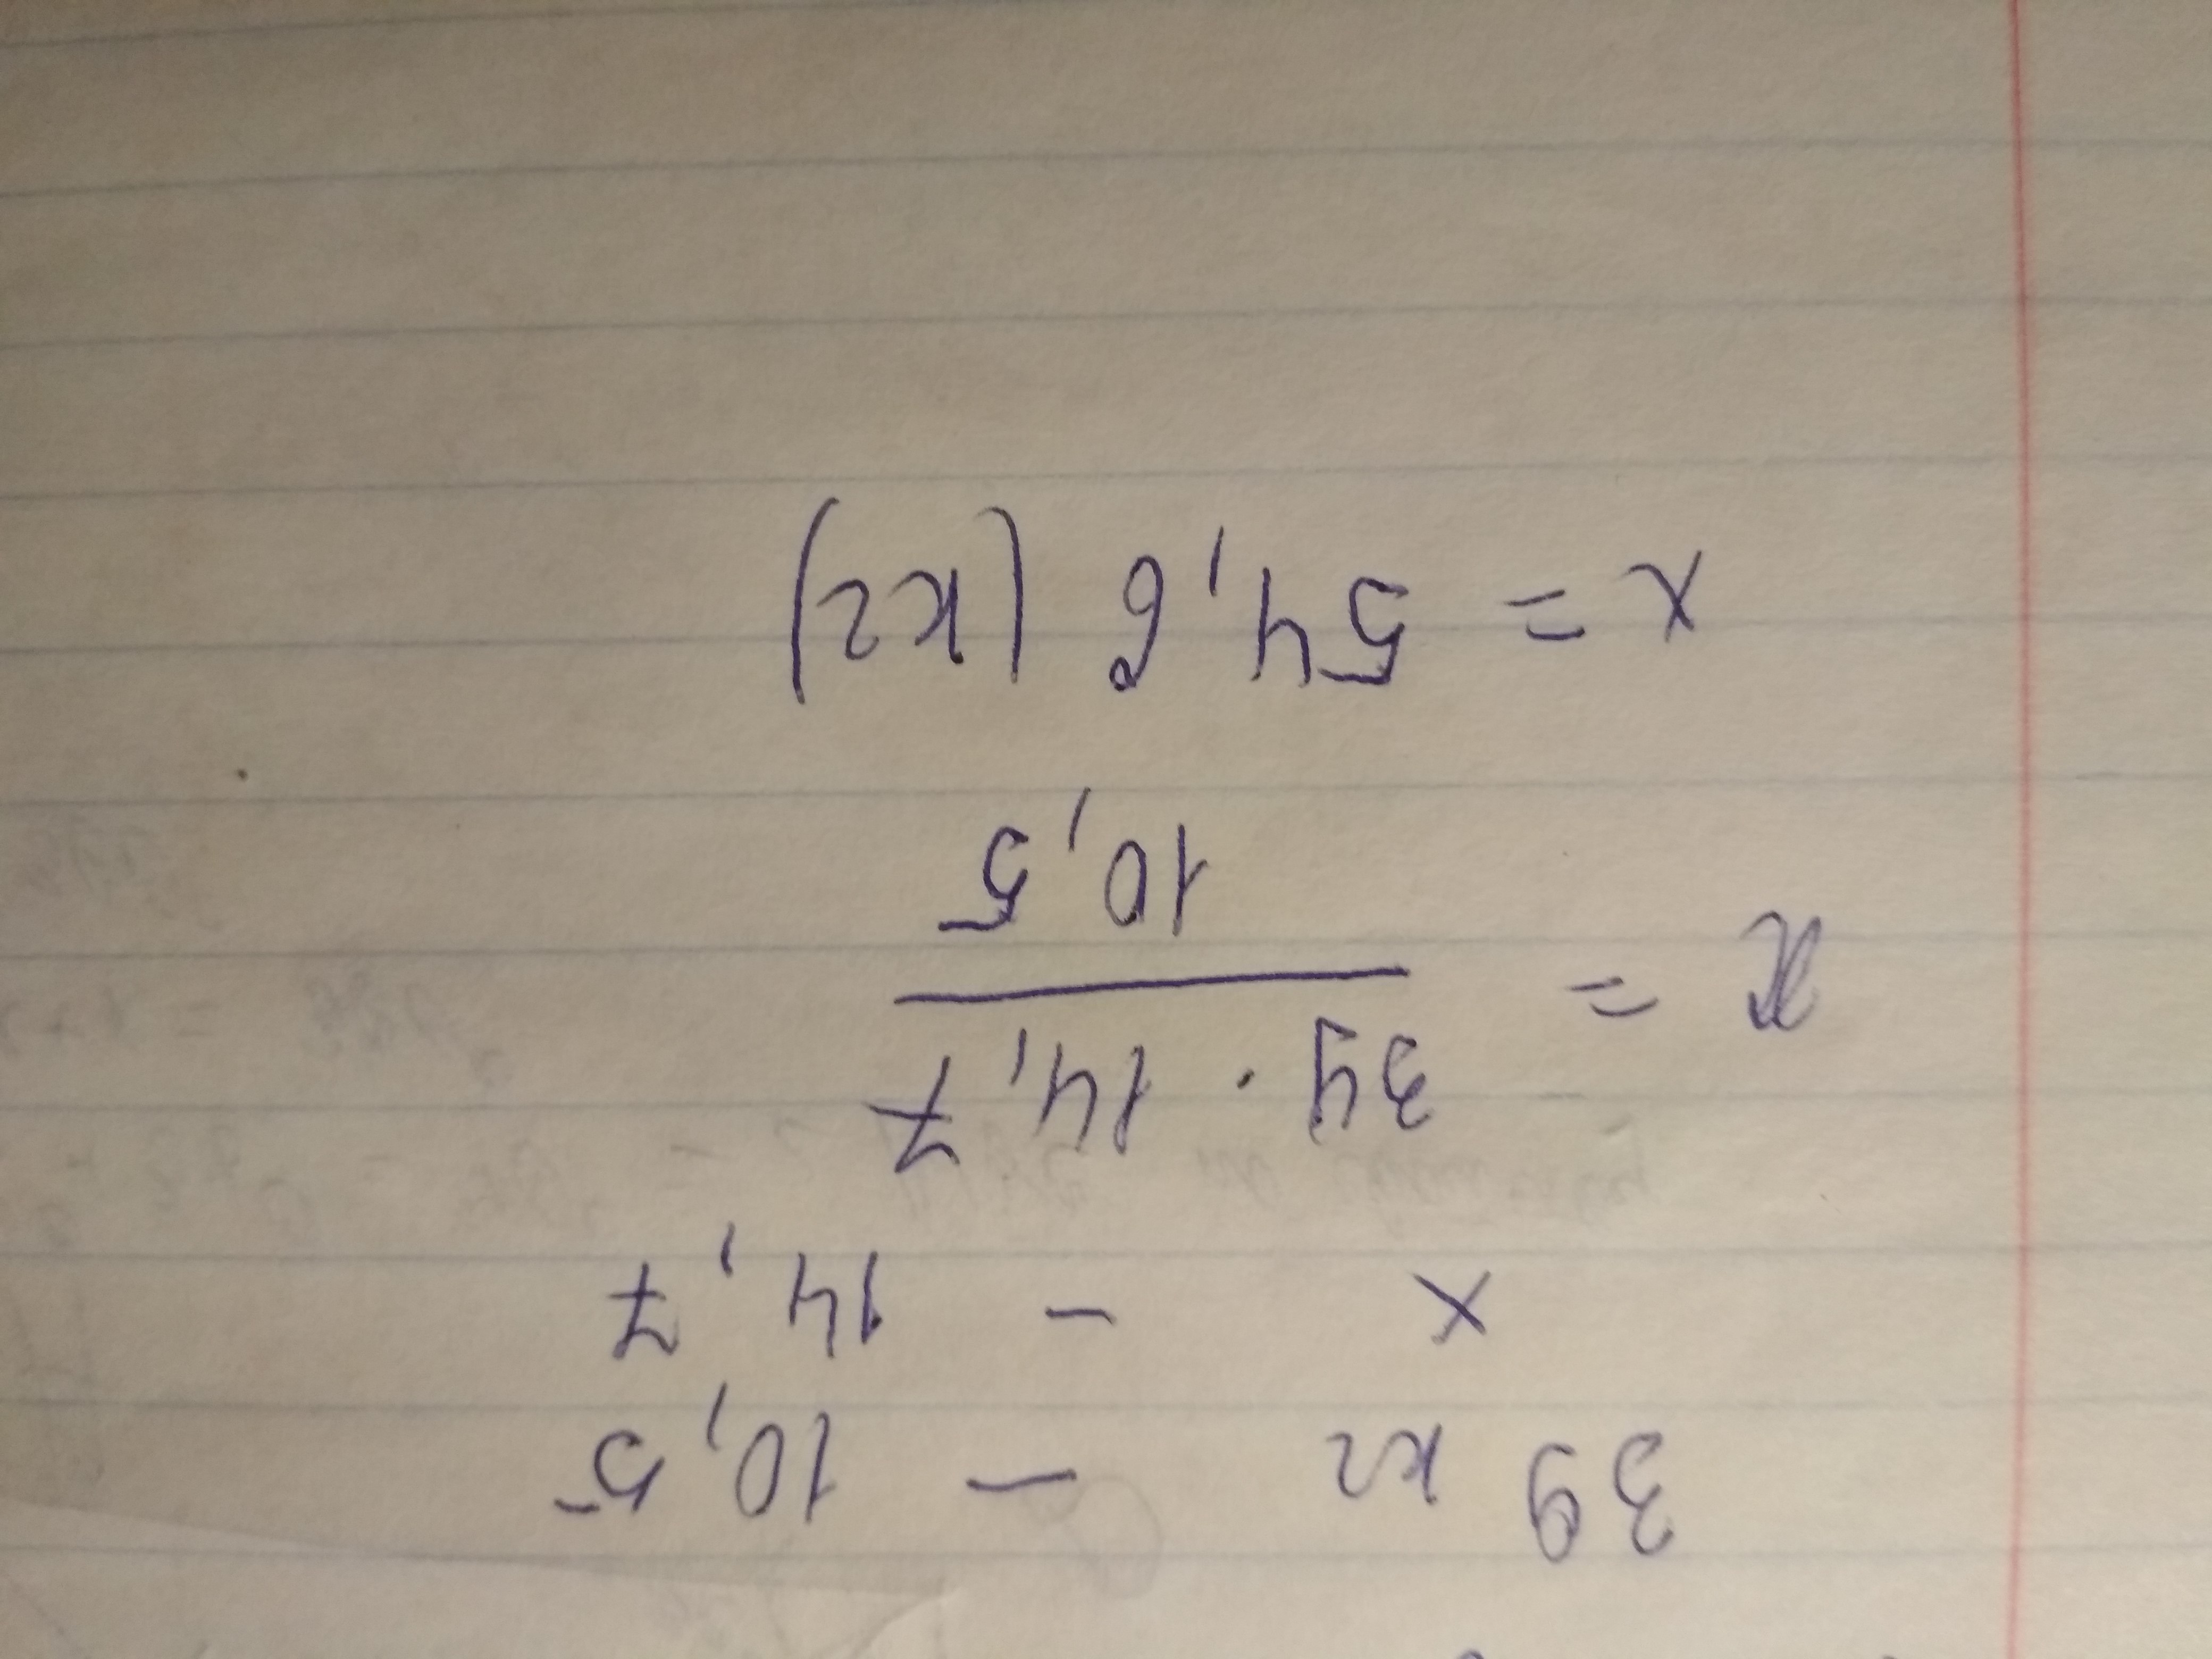 39 кг — 10,5
x - 14,7
x = 39 · 14,7 / 10,5
x = 54,6 (кг)